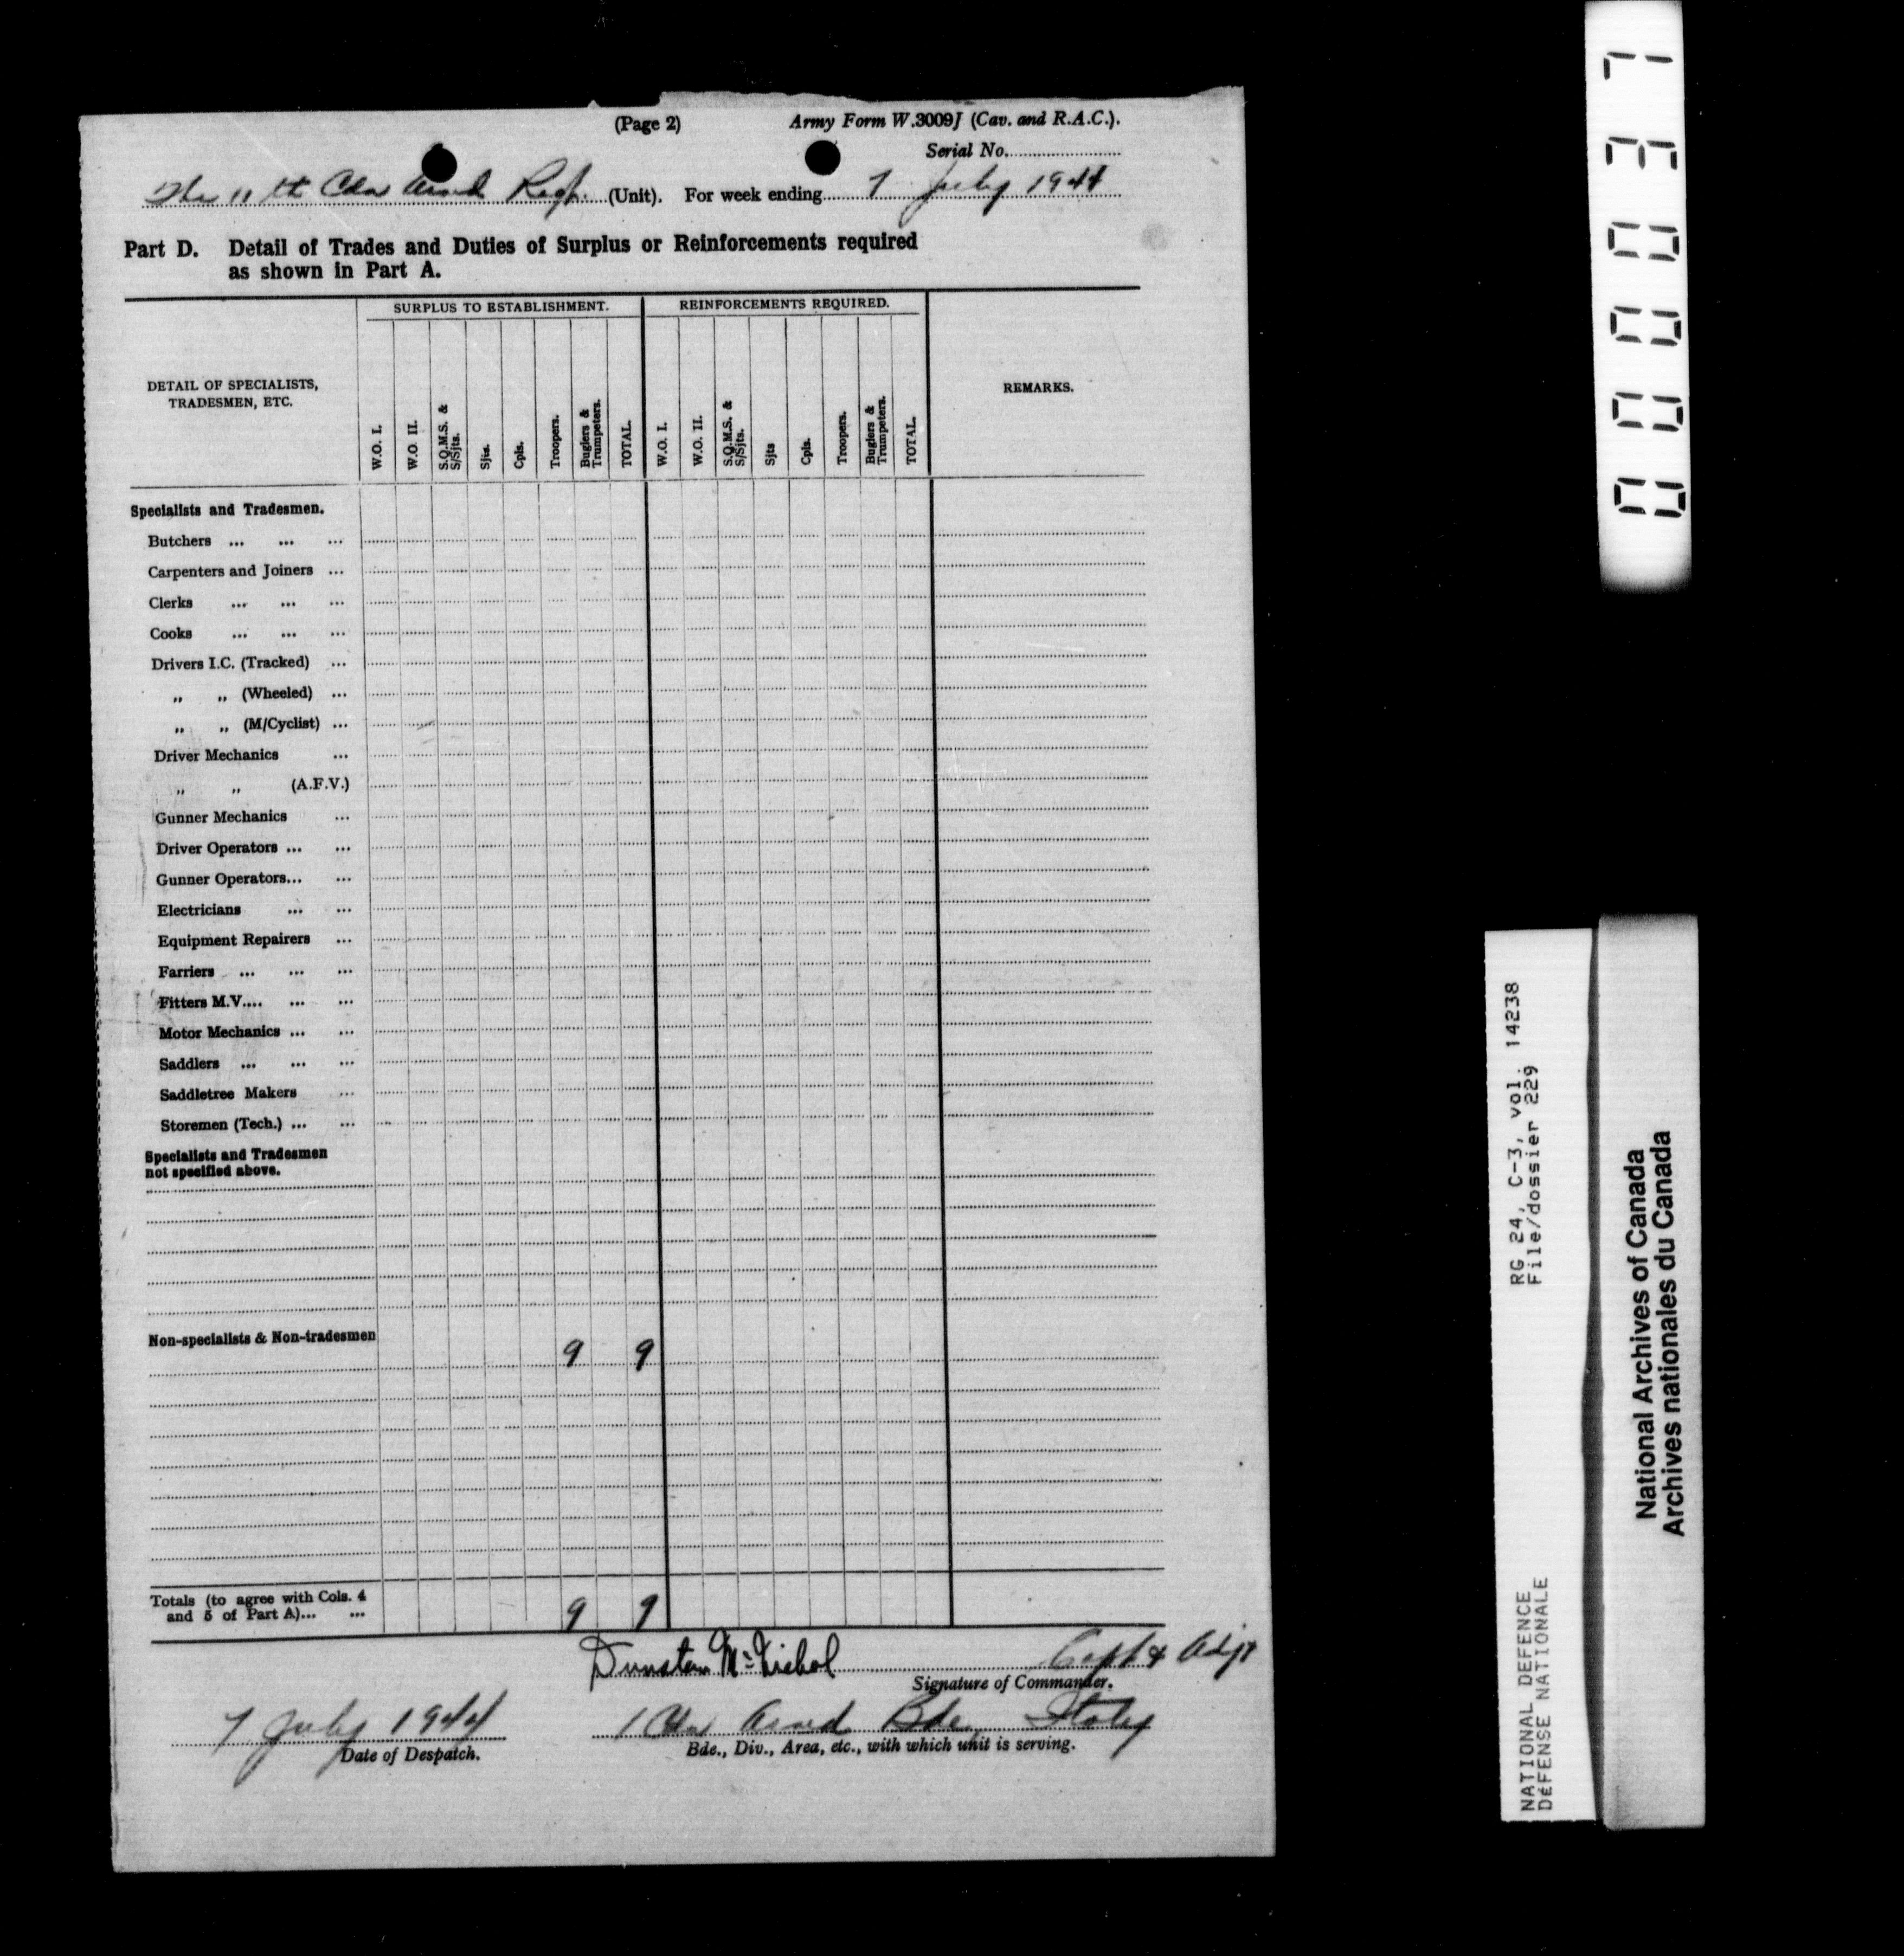 (Page 2) Army Form W.3009J (Cav. and R.A.C.).
Serial No.
The 11th Cdn Armd Regt. (Unit). For week ending 7 July 1944
Part D. Detail of Trades and Duties of Surplus or Reinforcements required
as shown in Part A.
DETAIL OF SPECIALISTS,
TRADESMEN, ETC.
SURPLUS TO ESTABLISHMENT.
W.O. I.
W.O. II.
S.Q.M.S. &
S/Sjts.
Sjts.
Cpls.
Troopers.
Buglers &
Trumpeters.
TOTAL.
REINFORCEMENTS REQUIRED.
W.O. I.
W.O. II.
S.Q.M.S. &
S/Sjts.
Sjts
Cpls.
Troopers.
Buglers &
Trumpeters.
TOTAL.
REMARKS.
Specialists and Tradesmen.
Butchers ... ... ...
Carpenters and Joiners ...
Clerks ... ... ...
Cooks ... ... ...
Drivers I.C. (Tracked) ...
„ „ (Wheeled) ...
„ „ (M/Cyclist) ...
Driver Mechanics ...
„ „ (A.F.V.)
Gunner Mechanics ...
Driver Operators ... ...
Gunner Operators... ...
Electricians ... ...
Equipment Repairers ...
Farriers ... ... ...
Fitters M.V.... ... ...
Motor Mechanics ... ...
Saddlers ... ... ...
Saddletree Makers ...
Storemen (Tech.) ... ...
Specialists and Tradesmen
not specified above.
Non-specialists & Non-tradesmen
9 9
Totals (to agree with Cols. 4
and 5 of Part A)... ...
9 9
Dunstan McNichol Capt & Adjt
Signature of Commander.
7 July 1944 1 Cdn Armd Bde, Italy
Date of Despatch. Bde., Div., Area, etc., with which unit is serving.
000037
RG 24, C-3, vol. 14238
File/dossier 229
NATIONAL DEFENCE
DÉFENSE NATIONALE
National Archives of Canada
Archives nationales du Canada